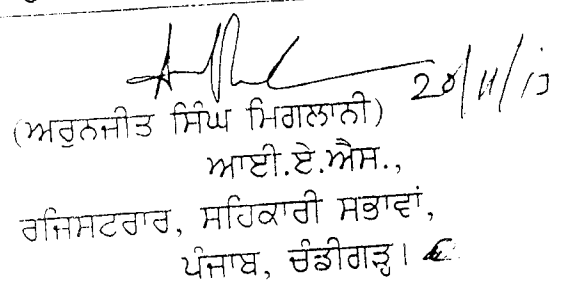 20/11/13
(ਅਰੁਨਜੀਤ ਸਿੰਘ ਮਿਗਲਾਨੀ)
ਆਈ.ਏ.ਐਸ.,
ਰਜਿਸਟਰਾਰ, ਸਹਿਕਾਰੀ ਸਭਾਵਾਂ,
ਪੰਜਾਬ, ਚੰਡੀਗੜ੍ਹ।